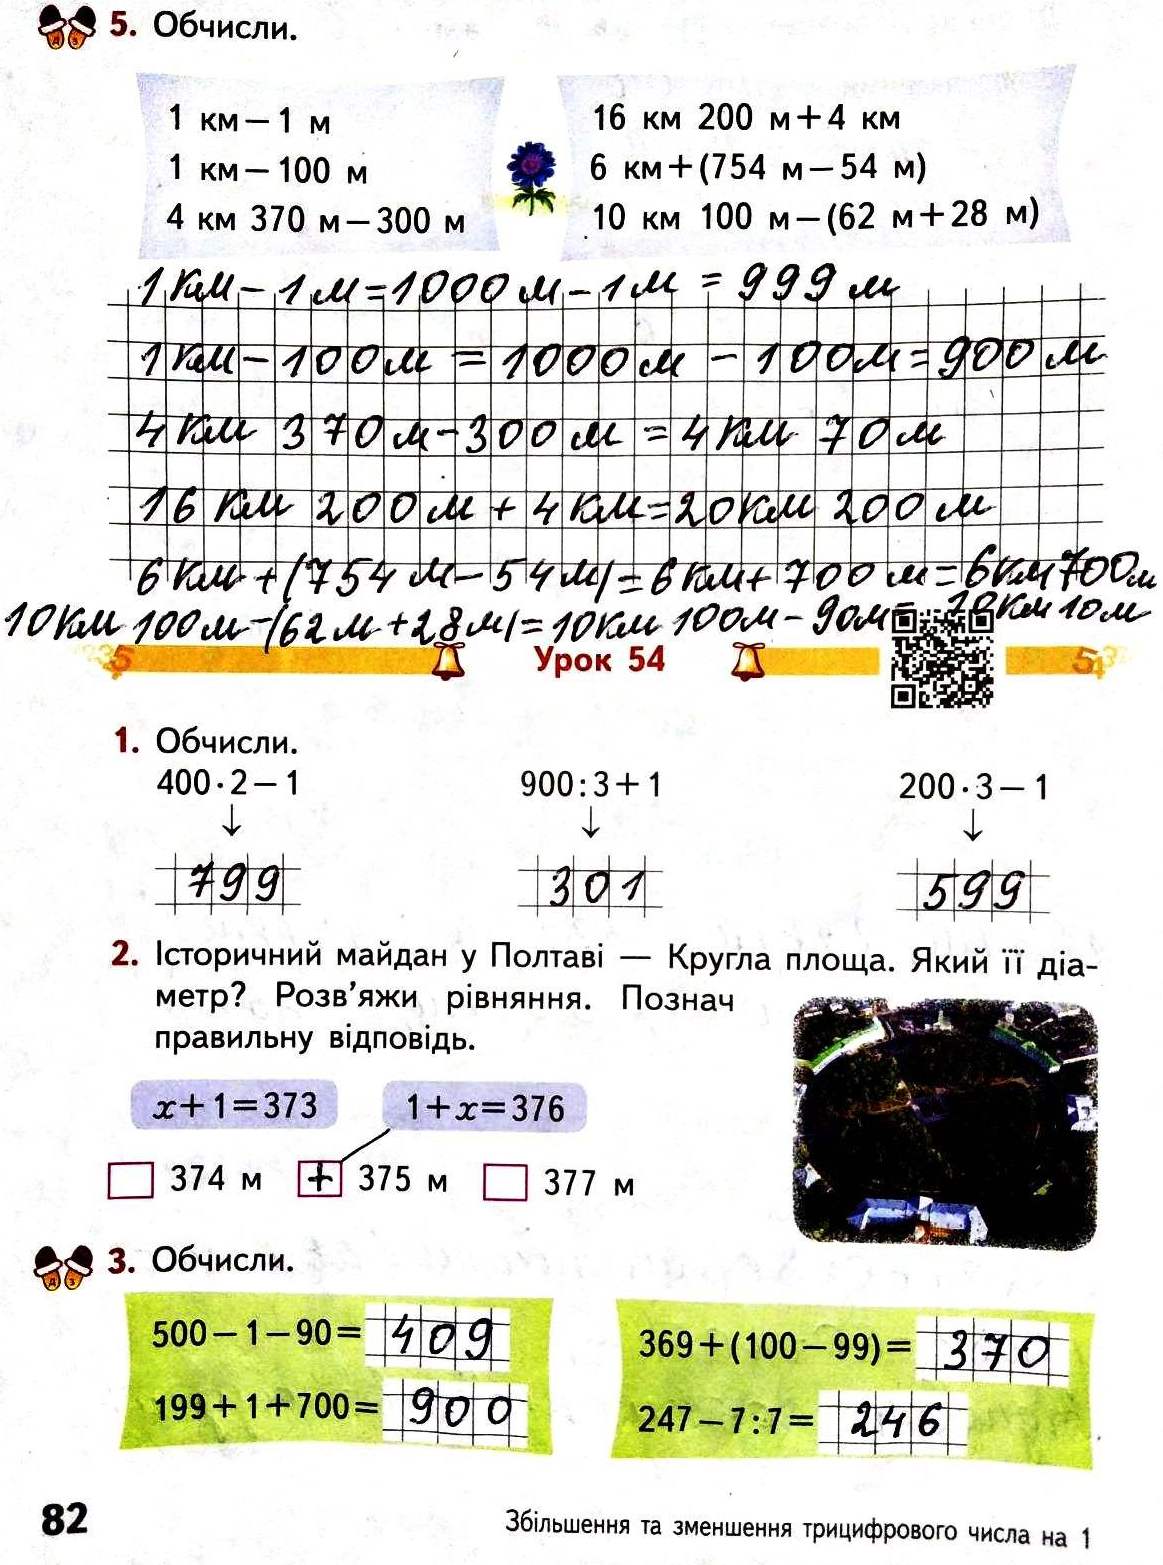 5. Обчисли.
1 км – 1 м
1 км – 100 м
4 км 370 м – 300 м
16 км 200 м + 4 км
6 км + (754 м – 54 м)
10 км 100 м – (62 м + 28 м)
1 км – 1 м = 1000 м – 1 м = 999 м
1 км – 100 м = 1000 м – 100 м = 900 м
4 км 370 м – 300 м = 4 км 70 м
16 км 200 м + 4 км = 20 км 200 м
6 км + (754 м – 54 м) = 6 км + 700 м = 6 км 700 м
10 км 100 м – (62 м + 28 м) = 10 км 100 м – 90 м = 10 км 10 м
Урок 54
1. Обчисли.
400 · 2 – 1
900 : 3 + 1
200 · 3 – 1
799
301
599
2. Історичний майдан у Полтаві — Кругла площа. Який її діа-
метр? Розв'яжи рівняння. Познач
правильну відповідь.
x + 1 = 373
1 + x = 376
374 м
+ 375 м
377 м
3. Обчисли.
500 – 1 – 90 = 409
199 + 1 + 700 = 900
369 + (100 – 99) = 370
247 – 7 : 7 = 246
82
Збільшення та зменшення трицифрового числа на 1